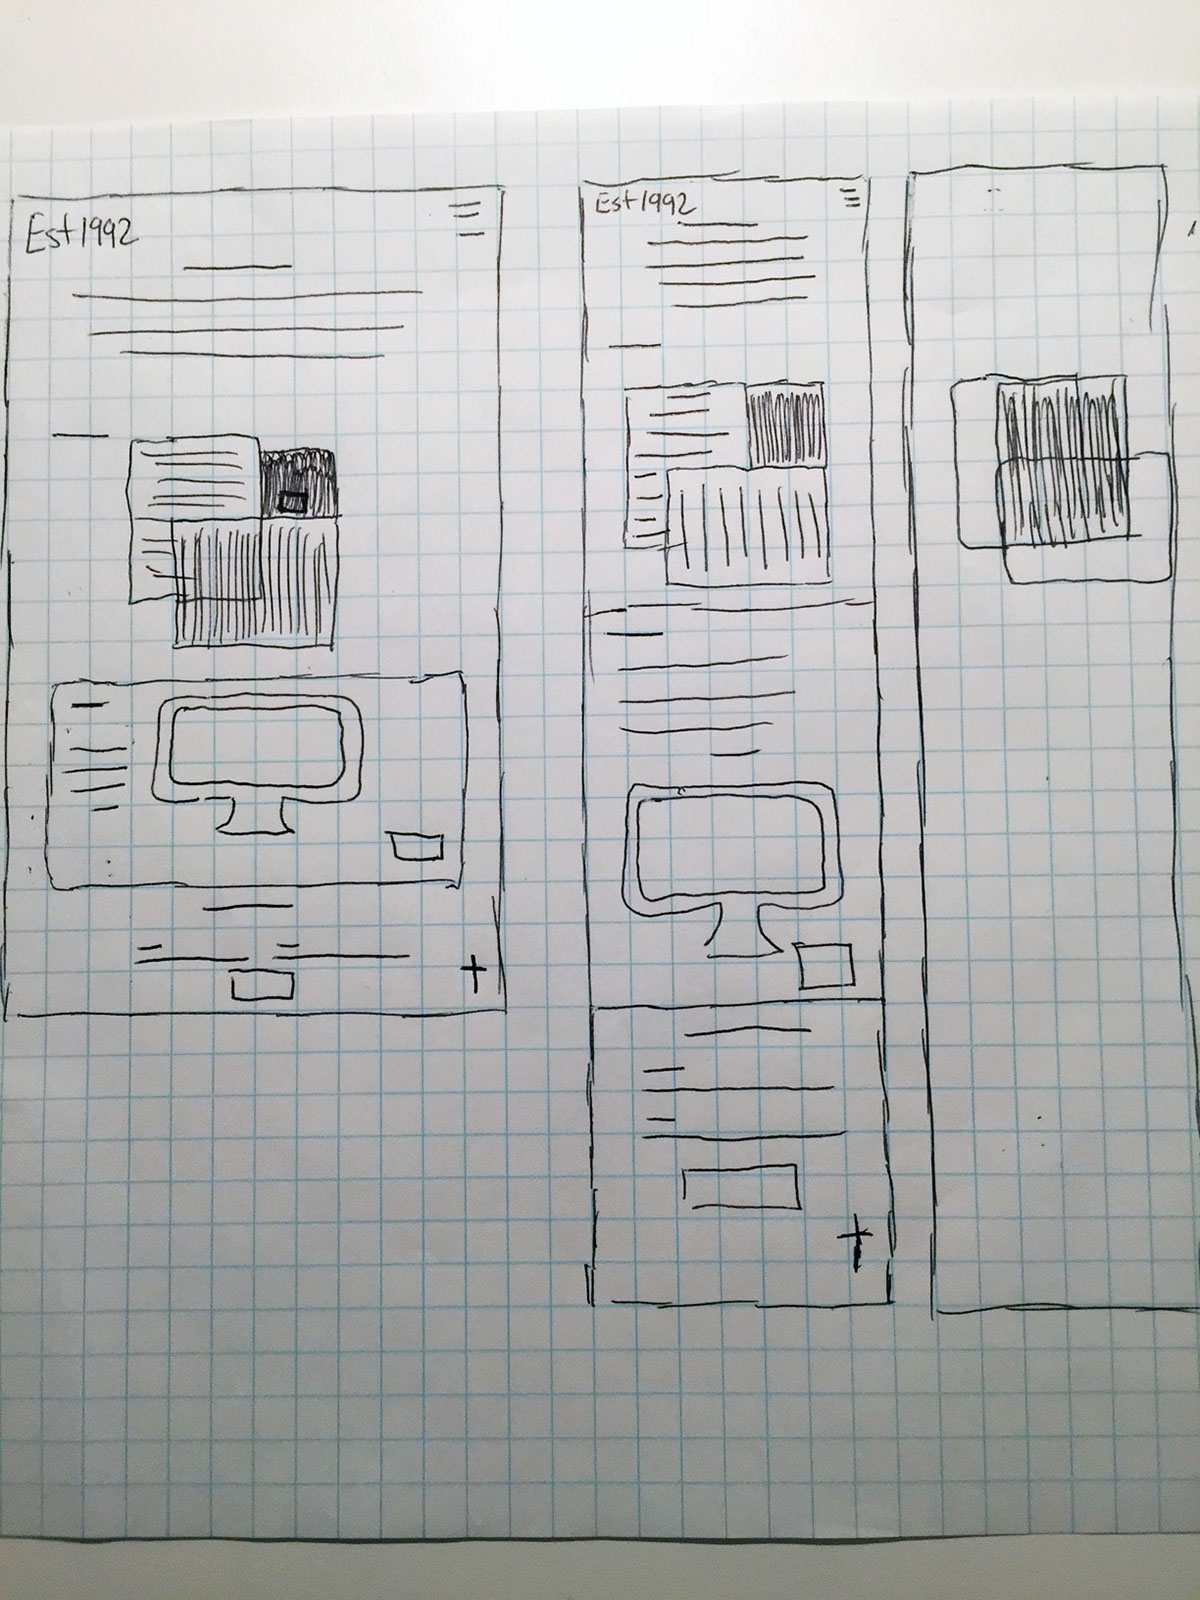 Est 1992
Est 1992